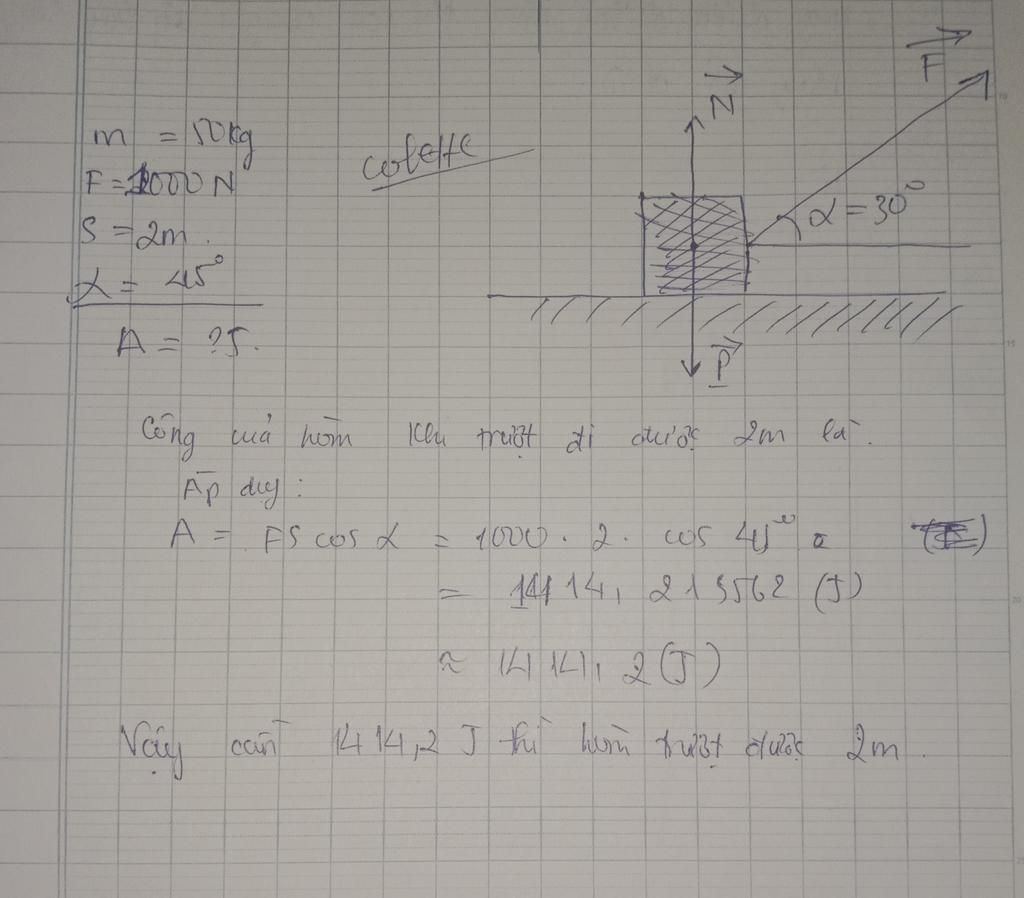 m = 50kg
F = 1000 N
S = 2m.
α = 45°
A = ?J.
colette
N
F
α = 30°
P
Công của hòm khi trượt đi được 2m là.
Áp dụg:
A = FS cos α = 1000 . 2 . cos 45°
= 1414, 213562 (J)
≈ 1414, 2 (J)
Vậy cần 1414,2 J thì hòm trượt được 2m.